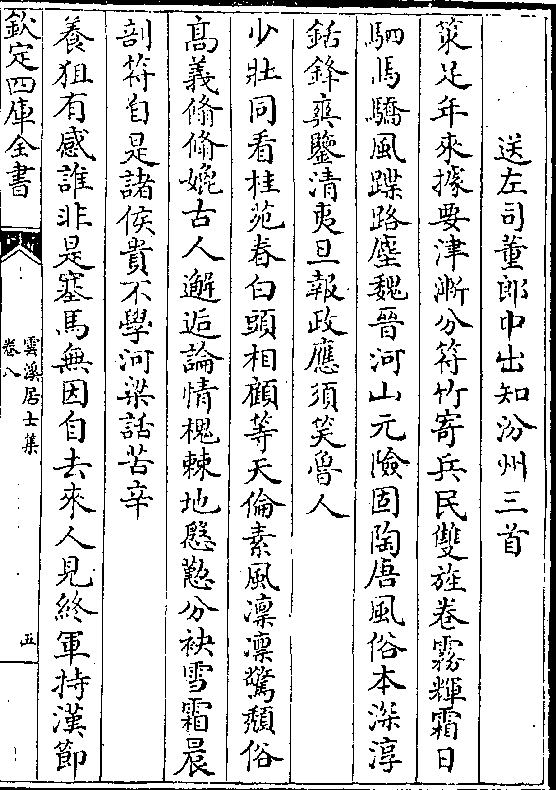 送左司董郎中出知汾州三首
策足年來據要津漸分符竹寄兵民雙旌卷霧輝霜日
駟馬驕風蹀路塵魏晉河山元險固陶唐風俗本深淳
銛鋒奭鑒清夷旦報政應須笑魯人
少壯同看桂苑春白頭相顧等天倫素風凛凛驚頽俗
髙義翛翛媲古人邂逅論情槐棘地慇懃分袂雪霜晨
剖符自是諸侯貴不學河梁話苦辛
養狙有感誰非是塞馬無因自去來人見終軍持漢節
欽定四庫全書
雲溪居士集
卷八
五